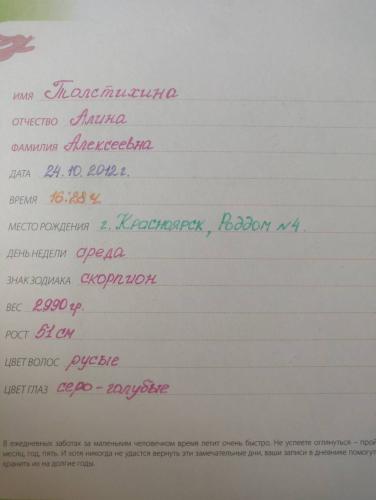 ИМЯ Толстихина
ОТЧЕСТВО Алина
ФАМИЛИЯ Алексеевна
ДАТА 24.10.2012 г.
ВРЕМЯ 16:28 ч.
МЕСТО РОЖДЕНИЯ г. Красноярск, Роддом №4.
ДЕНЬ НЕДЕЛИ среда
ЗНАК ЗОДИАКА скорпион
ВЕС 2990 гр.
РОСТ 51 см
ЦВЕТ ВОЛОС русые
ЦВЕТ ГЛАЗ серо-голубые
В ежедневных заботах за маленьким человечком время летит очень быстро. Не успеете оглянуться – прой
месяц, год, пять. И хотя никогда не удастся вернуть эти замечательные дни, ваши записи в дневнике помогут
хранить их на долгие годы.